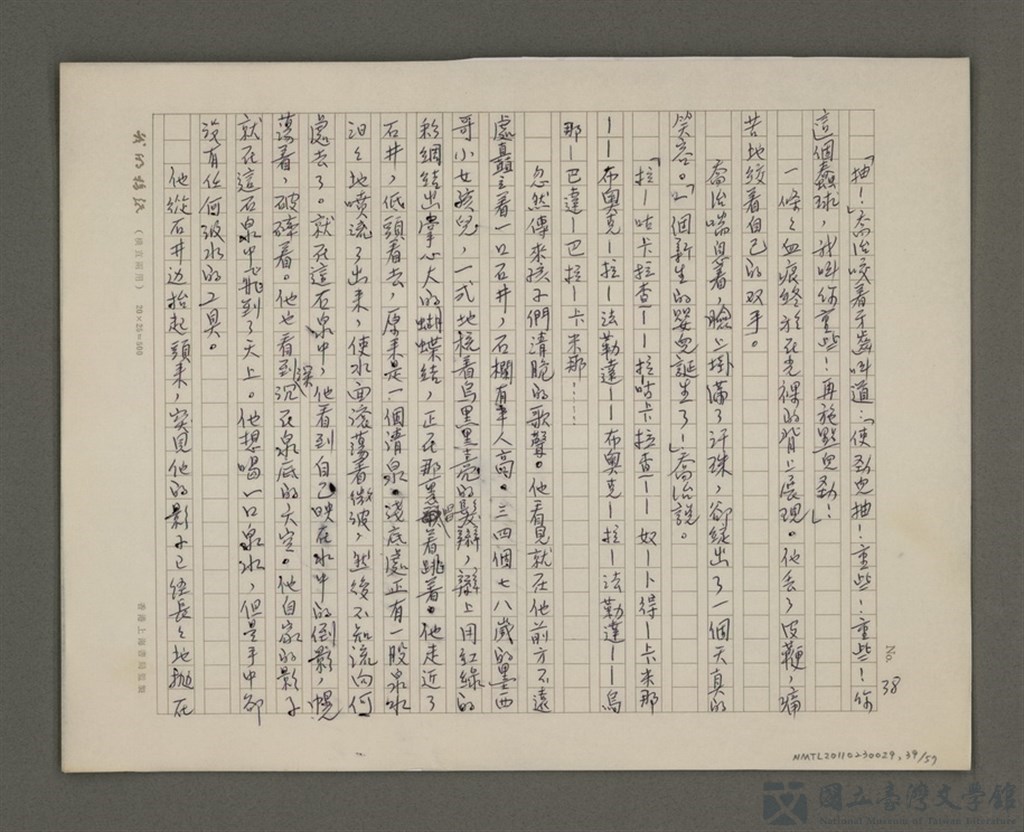 No. 38
「抽！」喬治咬着牙齒叫道：「使勁兒抽！重些！重些！你
這個蠢球，我叫你重些！再施點兒勁！」
一條々血痕終於在光裸的背上展現。他丟了皮鞭，痛
苦地絞着自己的双手。
喬治喘息着，臉上掛滿了汗珠，卻綻出了一個天真的
笑容。「一個新生的嬰兒誕生了！」喬治說。
「拉－咕卡拉查－－拉咕卡拉查－－奴－卜得－卡米那
－－布奧克－拉－法勒達－－布奧克－拉－法勒達－－烏
那－巴達－巴拉－卡米那……
忽然傳來孩子們清脆的歌聲。他看見就在他前方不遠
處矗立着一口石井，石欄有半人高。三四個七八歲的墨西
哥小女孩兒，一式地梳着烏黑黑亮的髮辮，辮上用紅綠的
彩綢結出掌心大的蝴蝶結，正在那裏唱着跳着。他走近了
石井，低頭看去，原來是一個清泉。淺底處正有一股泉水
汩々地噴流了出來，使水面滾蕩着微波，然後不知流向何
處去了。就在這石泉中，他看到自己映在水中的倒影，幌
蕩着，破碎着。他也看到沉落在泉底的天空。他自家的影子
就在這石泉中飛到了天上。他想喝一口泉水，但是手中卻
沒有任何汲水的工具。
他從石井边抬起頭來，突見他的影子已經長々地拋在
20×25=500
香港上海書局監製
NMTL20110230029, 39/59
國立臺灣文學館
National Museum of Taiwan Literature